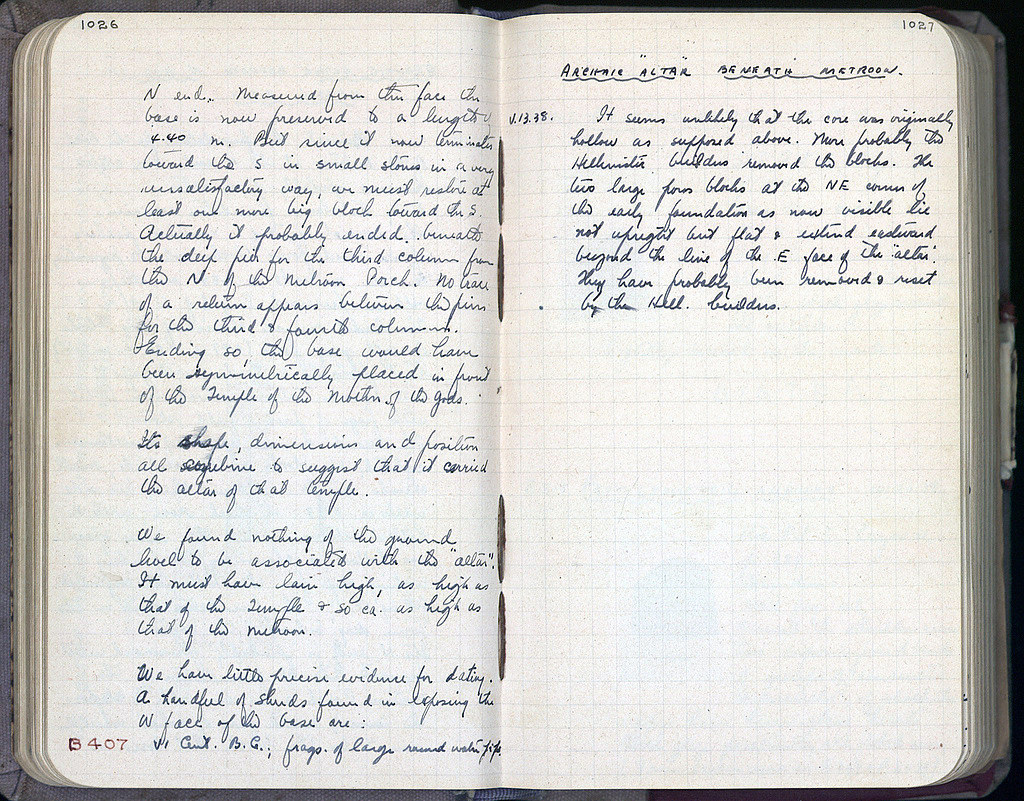 1026
N end. Measured from this face the
base is now preserved to a length of
4.40 m. But since it now terminates
toward the S in small stones in a very
unsatisfactory way, we must restore at
least one more big block toward the S.
Actually it probably ended beneath
the deep pier for the third column from
the N of the Metroon Porch. No trace
of a return appears between the piers
for the third & fourth columns.
Ending so, the base would have
been symmetrically placed in front
of the Temple of the Mother of the gods.
Its shape, dimensions and position
all combine to suggest that it carried
the altar of that temple.
We found nothing of the ground
level to be associated with the "altar".
It must have lain high, as high as
that of the Temple & so ca. as high as
that of the Metroon.
We have little precise evidence for dating.
A handful of sherds found in exposing the
W face of the base are:
B 407 VI Cent. B.C.; frags. of large round water pipe
1027
ARCHAIC "ALTAR" BENEATH METROON.
V.13.38. It seems unlikely that the core was originally
hollow as supposed above. More probably the
Hellenistic builders removed the blocks. The
two large poros blocks at the NE corner of
the early foundation as now visible lie
not upright but flat & extend eastward
beyond the line of the E face of the "altar".
They have probably been removed & reset
by the Hell. builders.